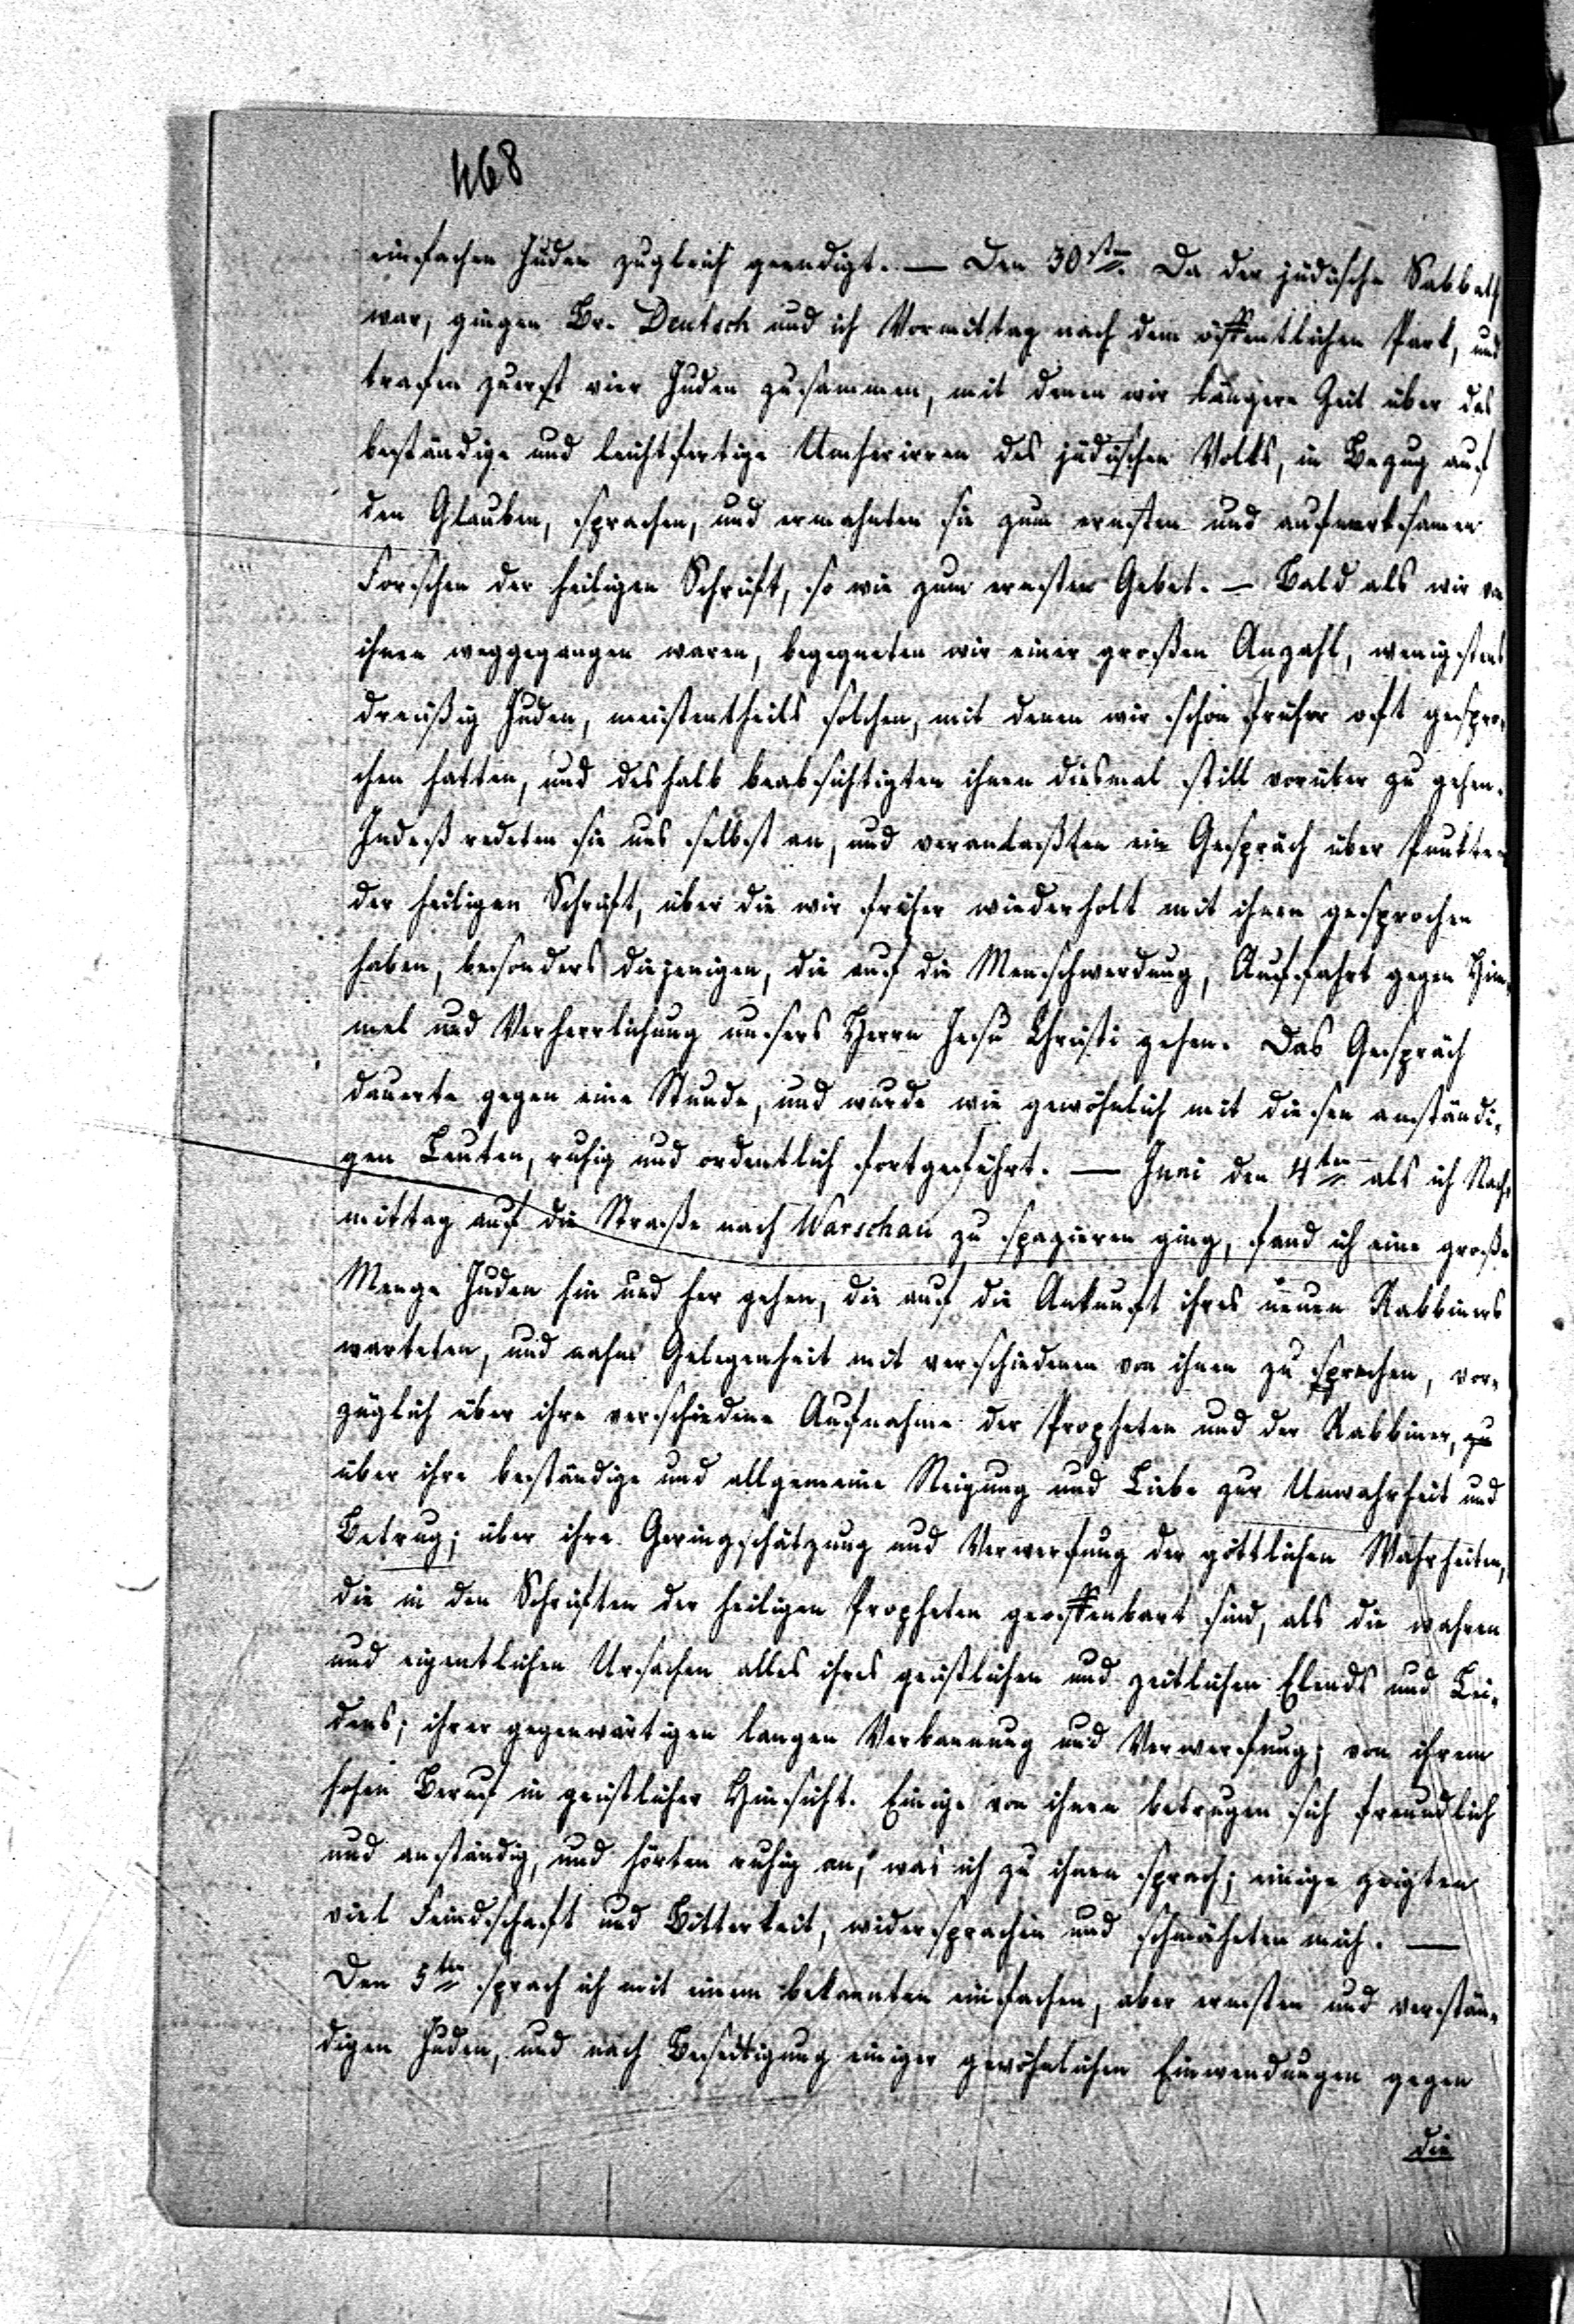 468
einfachen Juden zugleich geendigt. — Den 30sten. Da der jüdische Sabbath
war, gingen Br. Deutsch und ich Vormittag nach dem öffentlichen Park, und
trafen zuerst vier Juden zusammen, mit denen wir längere Zeit über das
beständige und leichtfertige Umherirren des jüdischen Volks, in Bezug auf
den Glauben, sprachen, und ermahnten sie zum ernsten und aufmerksamen
Forschen der heiligen Schrift, so wie zum ernsten Gebet. — Bald als wir von
ihnen weggegangen waren, begegneten wir einer großen Anzahl, wenigstens
dreißig Juden, meistentheils solchen, mit denen wir schon früher oft gespro-
chen hatten, und deshalb beabsichtigten ihnen diesmal still vorüber zu gehen.
Indeß redeten sie uns selbst an, und veranlaßten ein Gespräch über Punkte
der heiligen Schrift, über die wir früher wiederholt mit ihnen gesprochen
haben, besonders diejenigen, die auf die Menschwerdung, Auffahrt gegen Him-
mel und Verherrlichung unsers Herrn Jesu Christi gehen. Das Gespräch
dauerte gegen eine Stunde, und wurde wie gewöhnlich mit diesen anständi-
gen Leuten, ruhig und ordentlich fortgeführt. — Juni den 4ten als ich Nach-
mittag auf die Straße nach Warschau zu spazieren ging, fand ich eine große
Menge Juden hin und her gehen, die auf die Ankunft ihres neuen Rabbiners
warteten, und nahm Gelegenheit mit verschiedenen von ihnen zu sprechen, vor-
züglich über ihre verschiedene Aufnahme der Propheten und der Rabbiner,
über ihre beständige und allgemeine Neigung und Liebe zur Unwahrheit und
Betrug; über ihre Geringschätzung und Verwerfung der göttlichen Wahrheiten,
die in den Schriften der heiligen Propheten geoffenbart sind, als die wahren
und eigentlichen Ursachen alles ihres geistlichen und zeitlichen Elends und Lei-
dens; ihrer gegenwärtigen langen Verbannung und Verwerfung; von ihrem
hohen Beruf in geistlicher Hinsicht. Einige von ihnen betrugen sich freundlich
und anständig, und hörten ruhig an, was ich zu ihnen sprach; einige zeigten
viel Feindschaft und Bitterkeit, widersprachen und schmäheten mich. —
Den 5ten sprach ich mit einem bekannten einfachen, aber ernsten und verstän-
digen Juden, und nach Beseitigung einiger gewöhnlichen Einwendungen gegen
die